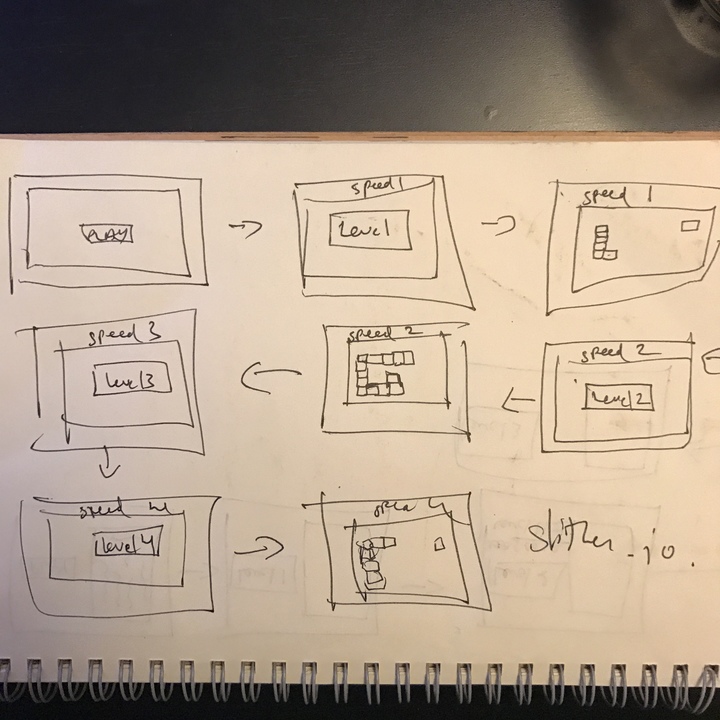 PLAY
speed 1
Level 1
speed 1
speed 2
Level 2
speed 2
speed 3
Level 3
speed 4
Level 4
speed 4
Slither.io.